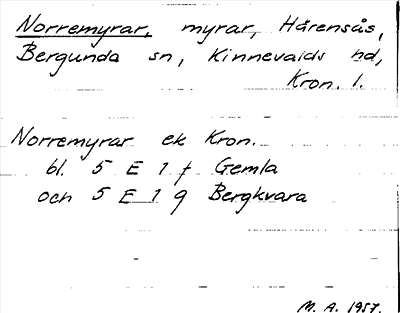 Norremyrar, myrar, Hårensås,
Bergunda sn, Kinnevalds hd,
Kron. l.
Norremyrar ek Kron.
bl. 5 E 1 f Gemla
och 5 E 1 g Bergkvara
M. A. 1957.